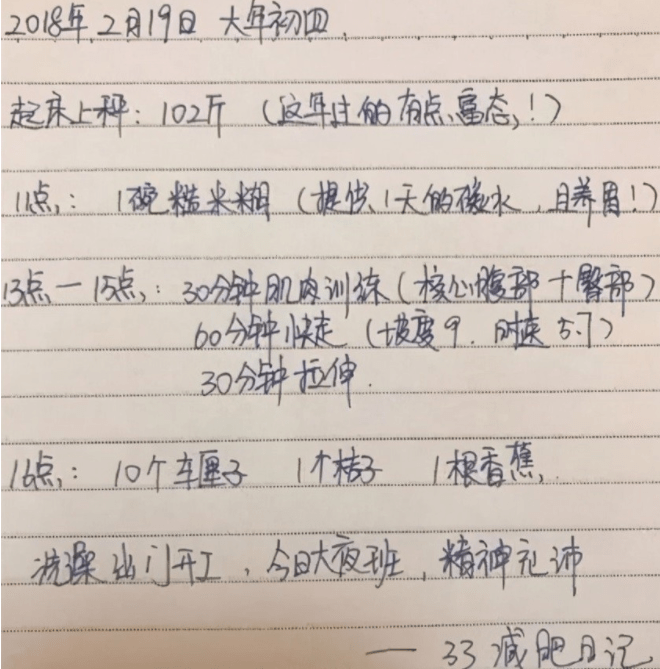 2018年2月19日 大年初四.
起床上秤: 102斤 (这年过的有点富态!)
11点: 1碗糙米糊 (提供1天的碳水, 且养胃!)
13点—15点: 30分钟肌肉训练(核心腹部+臀部)
60分钟快走 (坡度9. 时速5.7)
30分钟拉伸.
16点: 10个车厘子 1个桔子 1根香蕉.
洗澡出门开工, 今日大夜班, 精神充沛
—— 33减肥日记